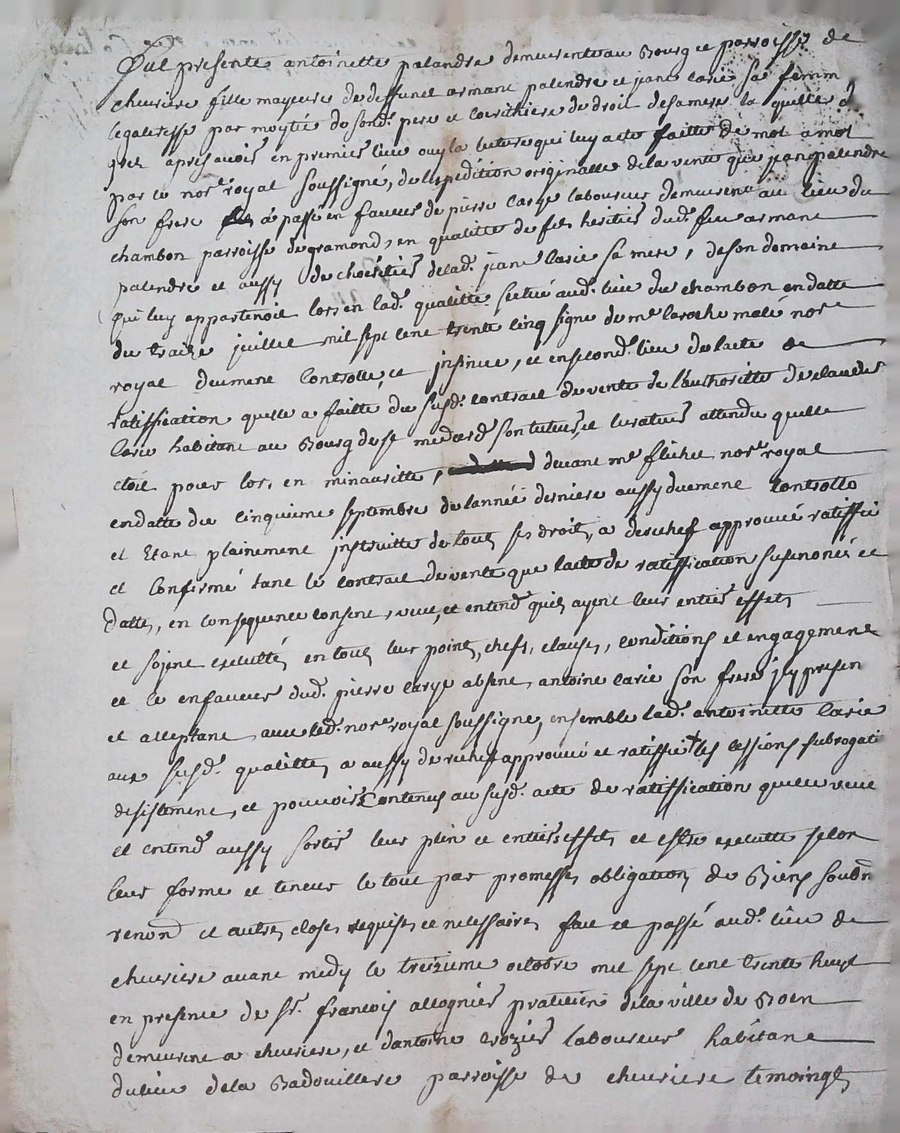 fut presente antoinette palandre demeurente au Bourg et parroisse de
cheuriere fille mayeure de deffunct armant palendre et jane larie sa femm
legateresse par moytié dud sond. pere et coeritiere de droit de sa mere la quelle d
gré apres avoir en premier lieu ouy la lecture qui luy a eté faitte de mot a mot
par le nore royal soussigné, de l'expedition originalle de la vente que jean palendre
son frere a passé en faveur de pierre carye laboureur demeurent au lieu du
chambon parroisse de gramond, en qualitte de fils heritier dud. feu armant
palendre et aussy de choéritier de lad. jane larie sa mere, de son domaine
qui luy appartenoit lors en lad. qualitte scittué aud. lieu du chambon en datte
du traize juillet mil sept cent trente cinq signe de me laroche malé nore
royal deument controllé, et insinué, et en second. lieu de lacte de
ratiffication quelle a faitte du susd. contract de vente de l'authoritte de claude
larie habitant au Bourg de st medard son tuteur, et curateur attendu quelle
étoit pour lors, en minauritté, devant me flichet nore royal
en datte du cinquieme septembre de lannée derniere aussy duement controllé
et Etant plainement instruitte de tout ses droits, a derechef approuvé ratiffié
et confirmé tant le contract de vente que lacte de ratiffication susenoncés et
dattés, en consequence consent, veut, et entend qu'ils ayent leur entier effets
et soient executtés en tout leur points, chefs, clauses, conditions et engagement
et ce en faveur dud. pierre carye absent, antoine larie son frere icy presen
et acceptant, avec led. nore royal soussigné, ensemble lad. antoinette larie
aux susd. qualittés a aussy derechef approuvé et ratiffié les cessions subrogati
desistement, et pouvoirs contenus au susd. acte de ratiffication quelle veut
et entend aussy sortir leur plein et entier effets et estre executté selon
leur forme et teneur le tout par promesses obligation de Biens soubm
renond et autres closes requises et necessaires fait et passé aud. lieu de
cheuriere avant midy le treizieme octobre mil sept cent trente huyt
en presence de sr. francois allognier praticien de la ville de Boen
demeurent a cheuriere, et d'antoine crozier laboureur habitant
du lieu de la Badouillere parroisse de cheuriere temoings